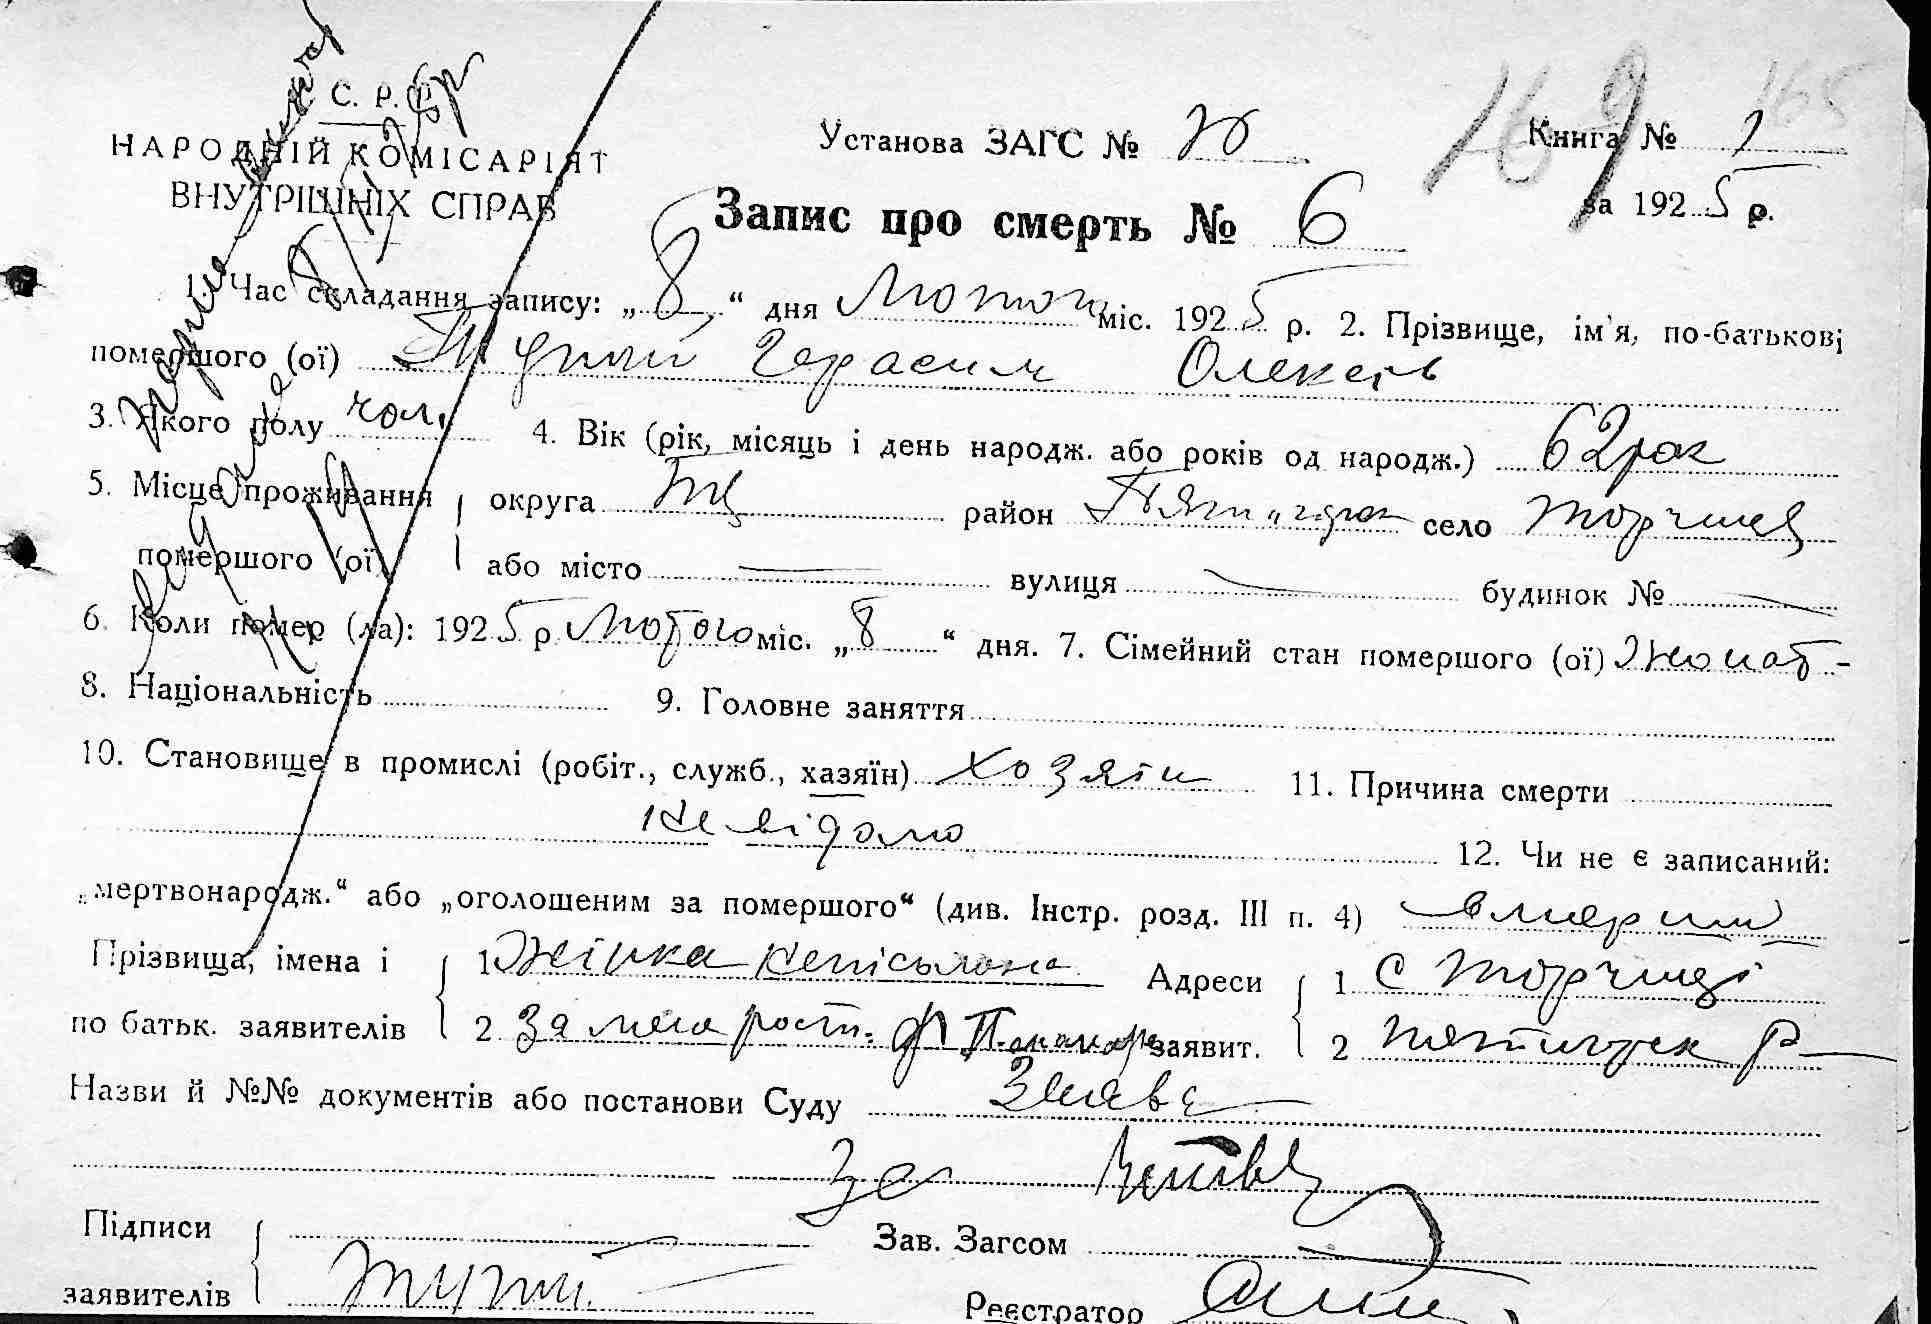 С. Р. Р.
НАРОДНІЙ КОМІСАРІЯТ
ВНУТРІШНІХ СПРАВ
169
165
Установа ЗАГС №
Книга № 1
за 1925 р.
Запис про смерть № 6
1. Час складання запису: „8“ дня Лютого міс. 1925 р. 2. Прізвище, ім'я, по-батькові
помершого (ої) Герасим Олексів
3. Якого полу чол. 4. Вік (рік, місяць і день народж. або років од народж.) 62 рок
5. Місце проживання округа БЦ район Пятигорск село Торчиця
помершого (ої) або місто вулиця будинок №
6. Коли помер (ла): 1925 р. Лютого міс. „8“ дня. 7. Сімейний стан помершого (ої) Жонат-
8. Національність 9. Головне заняття
10. Становище в промислі (робіт., служб., хазяїн) Хозяін 11. Причина смерти
Не відомо 12. Чи не є записаний:
„мертвонародж.“ або „оголошеним за помершого“ (див. Інстр. розд. III п. 4) вмерший
Прізвища, імена і 1 Жінка Адреси 1 С Торчиці
по батьк. заявителів 2 заявит. 2 Пятигорск р
Назви й №№ документів або постанови Суду Заява
За
Підписи
Зав. Загсом
заявителів
Реєстратор